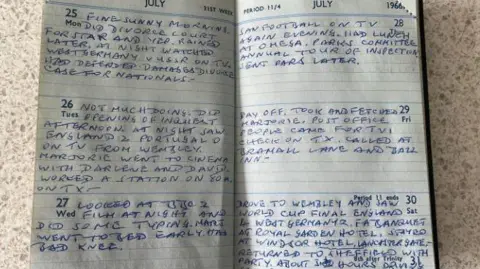 JULY
31ST WEEK
25 FINE SUNNY MORNING
Mon DID DIVORCE COURT
FOR STAR AND YEP RAINED
LATER, AT NIGHT WATCHED
WEST GERMANY V USSR ON TV.
HAD DEFENDED DAMAGES DIVORCE
CASE FOR NATIONALS-
26 NOT MUCH DOING. DID
Tues OPENING OF INQUEST
AFTERNOON. AT NIGHT SAW
ENGLAND 2 PORTUGAL 0
ON TV FROM WEMBLEY.
MARJORIE WENT TO CINEMA
WITH DARLENE AND DAVID.
WORKED A STATION ON 80M.
ON TX-
27 LOOKED AT
Wed FILM AT NIGHT AND
DID SOME TYPING. MARJ
WENT TO BED EARLY.
BED KNEE.
PERIOD 11/4
JULY
1966
SAW FOOTBALL ON TV 28
AGAIN EVENING. HAD LUNCH
AT OMEGA. PARKS COMMITTEE
ANNUAL TOUR OF INSPECTION
PARS LATER.
DAY OFF. TOOK AND FETCHED 29
MARJORIE. POST OFFICE Fri
PEOPLE CAME FOR TVI
CHECK ON TX. CALLED AT
BRAMALL LANE AND BALL
INN-
Period 11 ends 30
DROVE TO WEMBLEY AND SAW Sat
WORLD CUP FINAL ENGLAND
4 WEST GERMANY 2. FA BANQUET
AT ROYAL GARDEN HOTEL. STAYED
AT WINDSOR HOTEL, LANCASTER GATE-
8th after Trinity 31
RETURNED TO SHEFFIELD WITH
PARTY. ABOUT HOURS